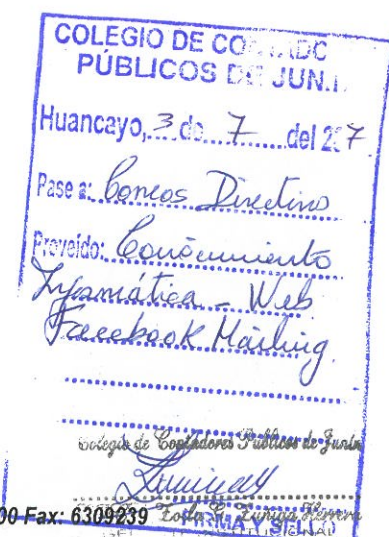 COLEGIO DE CO
PÚBLICOS DE JUN
Huancayo, 3 de 7 del 2 7
Pase a: Directivo
Proveído: Conocimiento
Informática - Web
Facebook Mailing
Colegio de Contadores Públicos de Junín
00 Fax: 6309239 Zúñiga Herrera
FIRMA Y SELLO